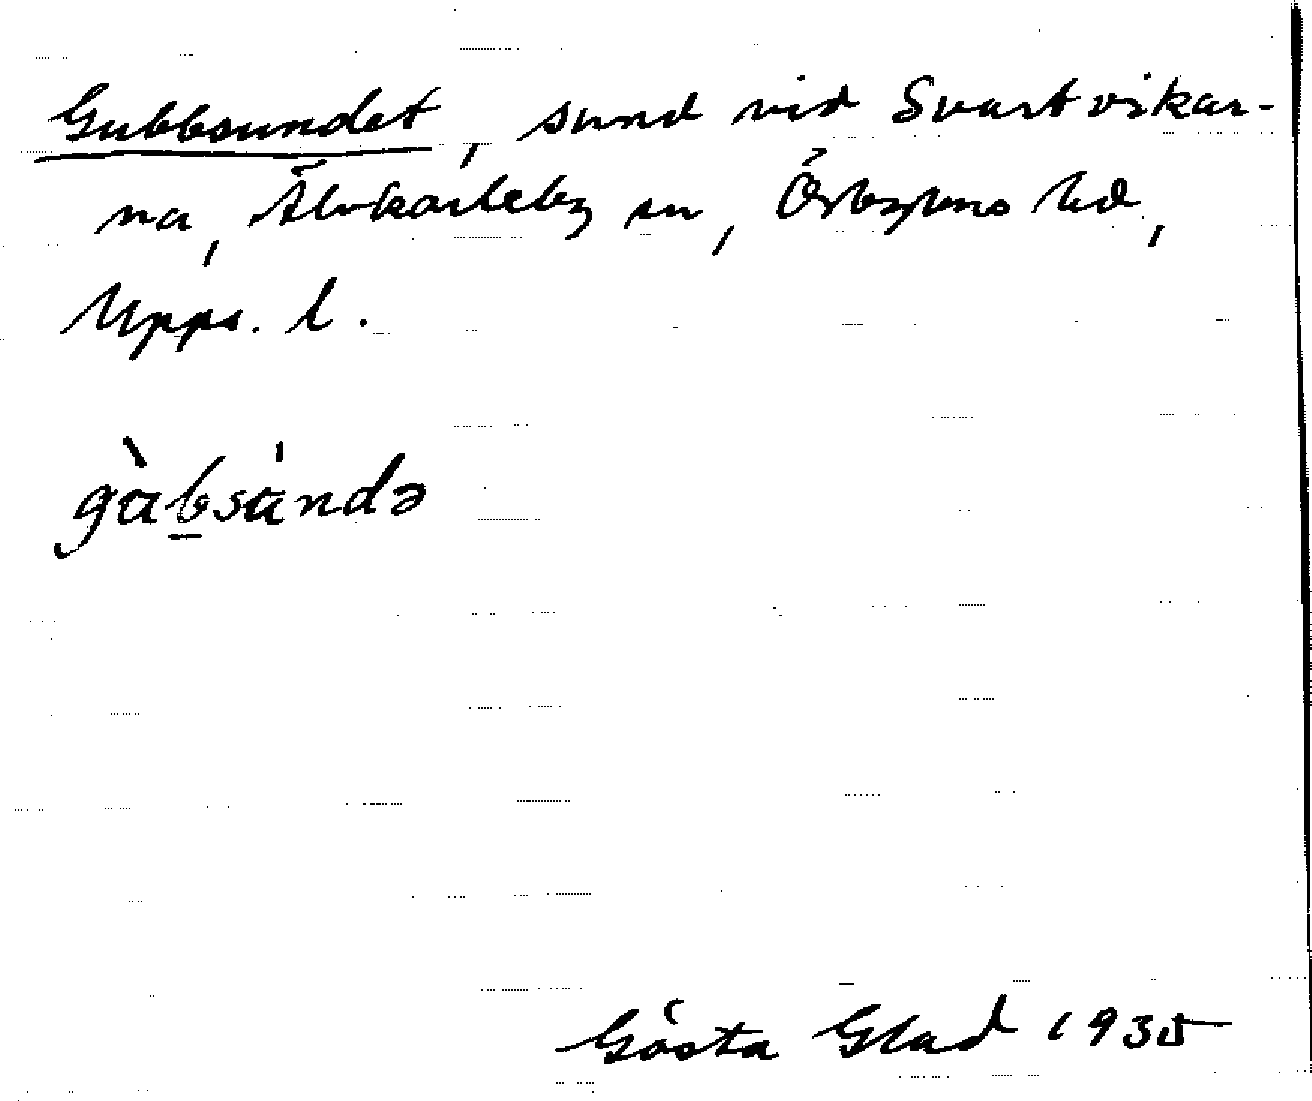 Gubbsundet, sund vid Svartvikar-
na, Älvkarleby sn, Örbyhus hd,
Upps. l.
gàbsándə
Gösta Glad 1935